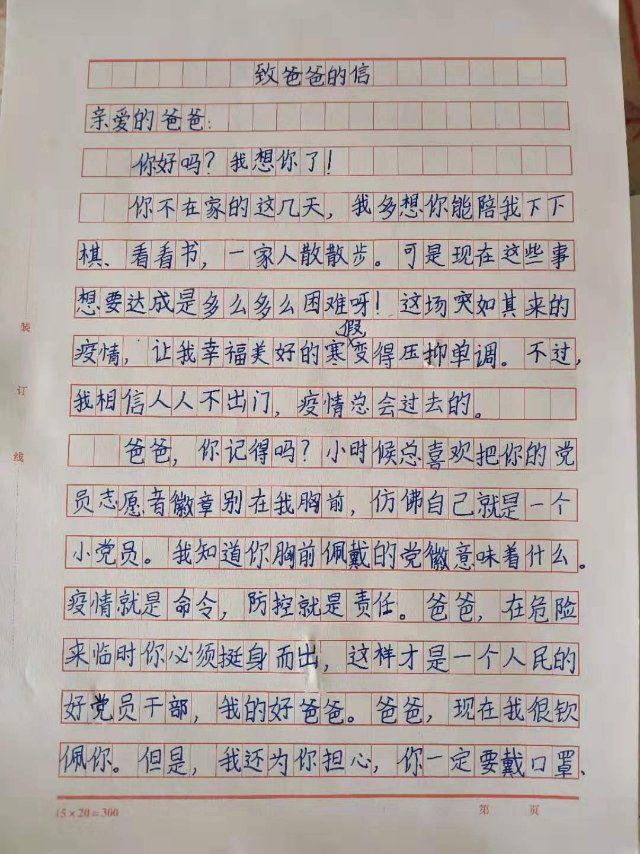 致爸爸的信
亲爱的爸爸:
你好吗?我想你了!
你不在家的这几天,我多想你能陪我下下
棋、看看书,一家人散散步。可是现在这些事
想要达成是多么多么困难呀!这场突如其来的
疫情,让我幸福美好的寒假变得压抑单调。不过,
我相信人人不出门,疫情总会过去的。
爸爸,你记得吗?小时候总喜欢把你的党
员志愿者徽章别在我胸前,仿佛自己就是一个
小党员。我知道你胸前佩戴的党徽意味着什么。
疫情就是命令,防控就是责任。爸爸,在危险
来临时你必须挺身而出,这样才是一个人民的
好党员干部,我的好爸爸。爸爸,现在我很钦
佩你。但是,我还为你担心,你一定要戴口罩、
装
订
线
15×20=300
第 页